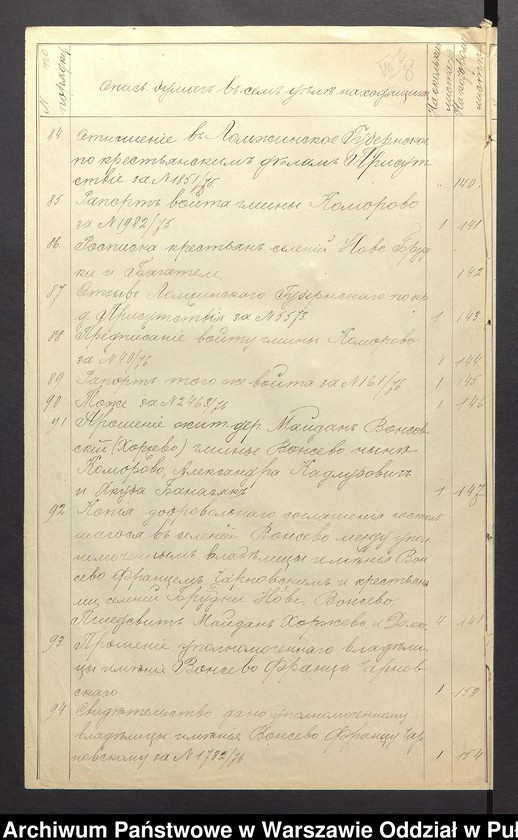 N по порядку
опись бумагъ въ семъ дѣлѣ находящихся
На сколькихъ листахъ
На которомъ листѣ
8
84 Отношеніе въ Ломжинское Губернское
по крестьянскимъ дѣламъ Присут
ствіе за N 1851/75 " 140.
85 Рапортъ войта гмины Коморово
за N 1982/75 1 141
86 Росписка крестьянъ селеній Нове Бруд
ки и Багателе 142
87 Отзывъ Ломжинскаго Губернскаго по кр
д. Присутствія за N 5573 1 143
88 Предписаніе войту гмины Коморово
за N 40/76 1 144
89 Рапортъ того же войта за N 161/76 1 145
90 Тоже за N 2468/76 1 146
91 Прошеніе жит. дер. Майданъ Вонсев
скій (Хоржево) гмины Вонсево нынѣ
Коморово, Александра Кадлубовичъ
и Якуба Банасякъ 1 147
92 Копія добровольнаго соглашенія состояв
шагося въ селеніи Вонсево между упол
номоченнымъ владѣлицы имѣнія Вон
сево Францемъ Чарновскимъ и крестьяна
ми селеній Брудки Нове, Вонсево
Майданъ Хоржево и 4 148
93 Прошеніе уполномоченнаго владѣли
цы имѣнія Вонсево Франца Чарнов
скаго 1 152
94 Свидѣтельство дано уполномоченному
владѣлицы имѣнія Вонсево Францу Чар
новскому за N 1782/76 1 154
Archiwum Państwowe w Warszawie Oddział w Puł